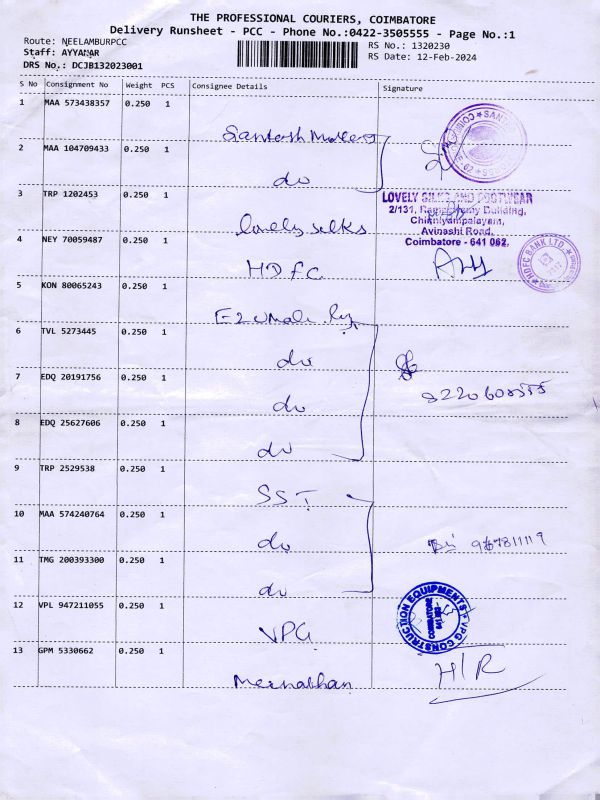 THE PROFESSIONAL COURIERS, COIMBATORE
Delivery Runsheet - PCC - Phone No.:0422-3505555 - Page No.:1
Route: NEELAMBURPCC
RS No.: 1320230
Staff: AYYANAR
RS Date: 12-Feb-2024
DRS No.: DCJB132023001
S No Consignment No Weight PCS Consignee Details Signature
1 MAA 573438357 0.250 1
2 MAA 104709433 0.250 1 do
3 TRP 1202453 0.250 1 lovely silks
LOVELY SILKS AND FOOTWEAR
2/131, Building,
Chinniyampalayam,
Avinashi Road,
Coimbatore - 641 062.
4 NEY 70059487 0.250 1 HDFC
HDFC BANK LTD
5 KON 80065243 0.250 1
6 TVL 5273445 0.250 1 do
7 EDQ 20191756 0.250 1 do
8 EDQ 25627606 0.250 1 do
9 TRP 2529538 0.250 1 SST
10 MAA 574240764 0.250 1 do
11 TMG 200393300 0.250 1 do
12 VPL 947211055 0.250 1 VPG
VPG CONSTRUCTION EQUIPMENTS
COIMBATORE
13 GPM 5330662 0.250 1